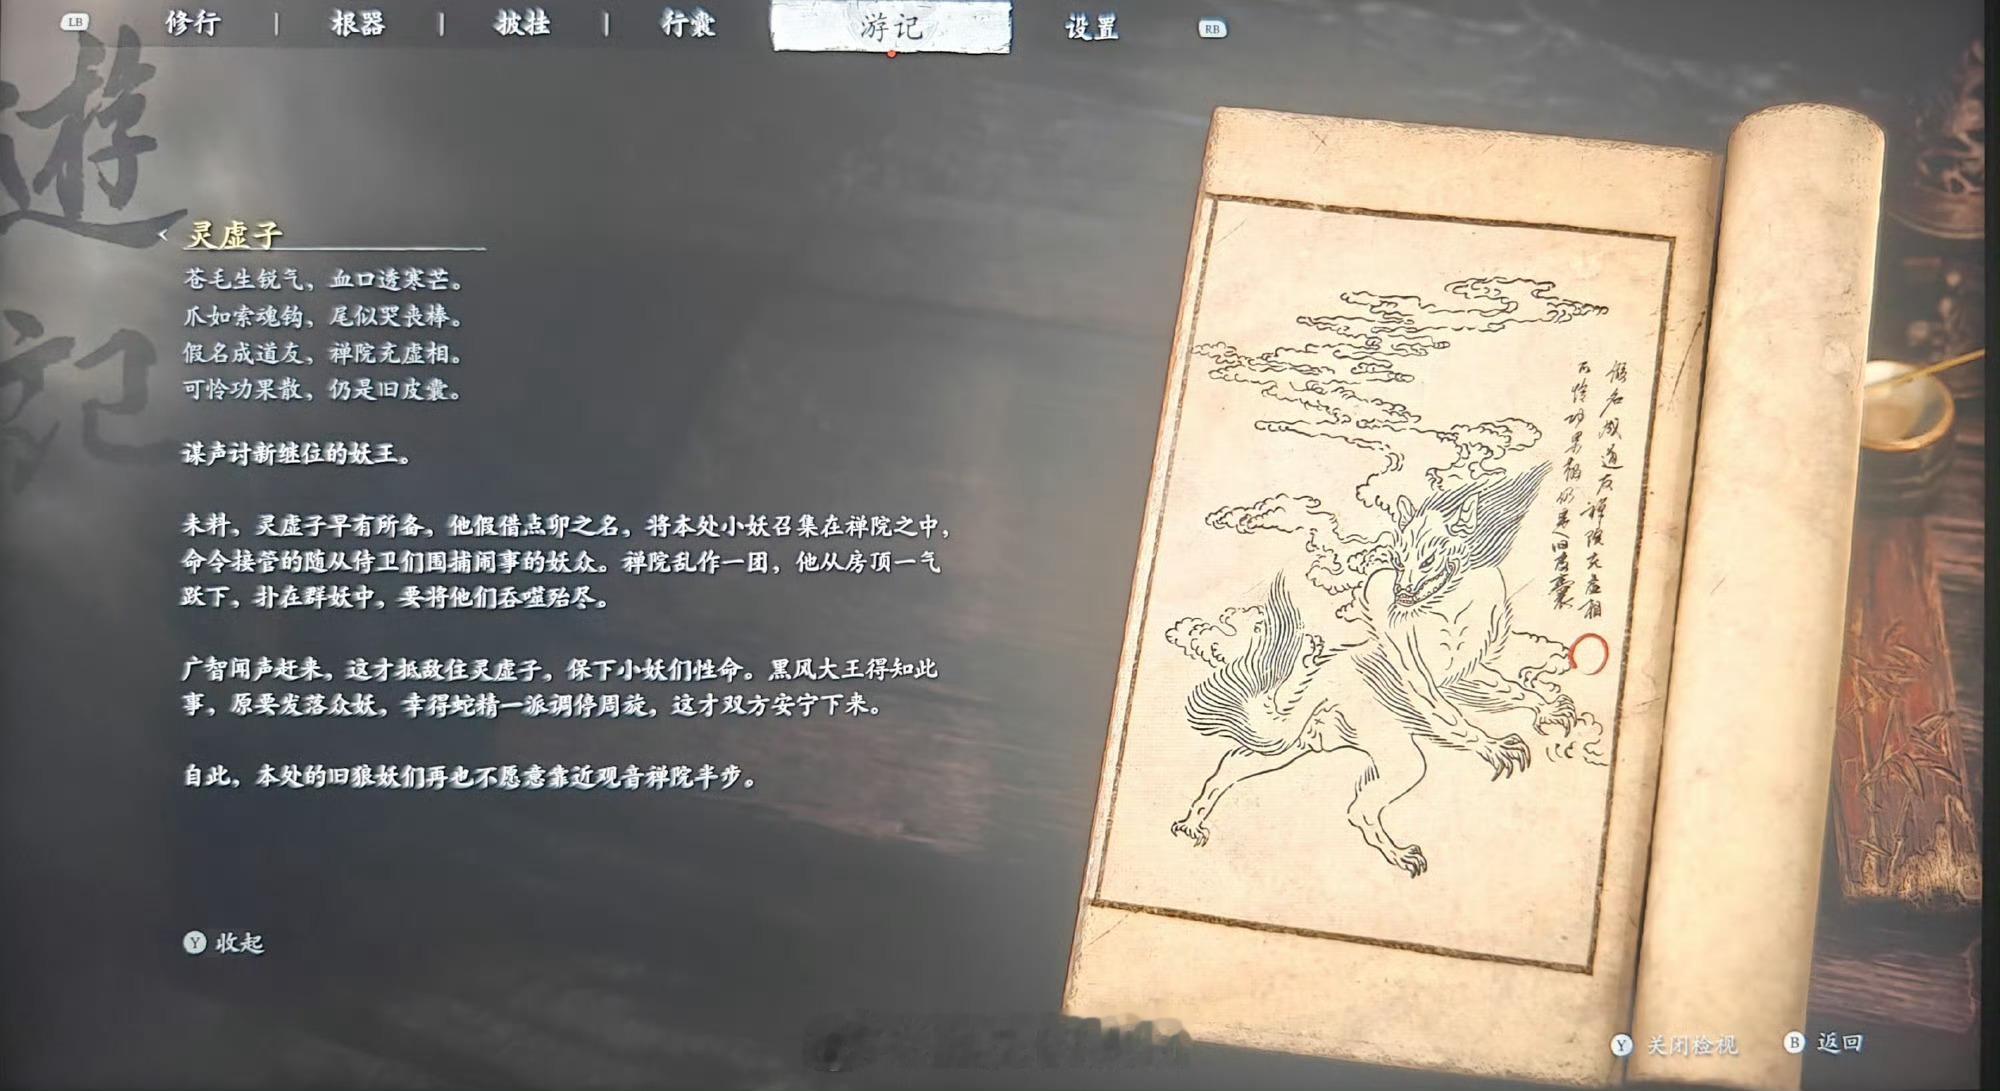 LB 修行 | 根器 | 披挂 | 行囊 游记 设置 RB
遊記
灵虚子
苍毛生锐气，血口透寒芒。
爪如索魂钩，尾似哭丧棒。
假名成道友，禅院充虚相。
可怜功果散，仍是旧皮囊。
谋声讨新继位的妖王。
未料，灵虚子早有所备，他假借点卯之名，将本处小妖召集在禅院之中，
命令接管的随从侍卫们围捕闹事的妖众。禅院乱作一团，他从房顶一气
跃下，扑在群妖中，要将他们吞噬殆尽。
广智闻声赶来，这才抵敌住灵虚子，保下小妖们性命。黑风大王得知此
事，原要发落众妖，幸得蛇精一派调停周旋，这才双方安宁下来。
自此，本处的旧狼妖们再也不愿意靠近观音禅院半步。
Y 收起
假名成道友禅院充虚相
可怜功果散仍是旧皮囊
Y 关闭检视 B 返回